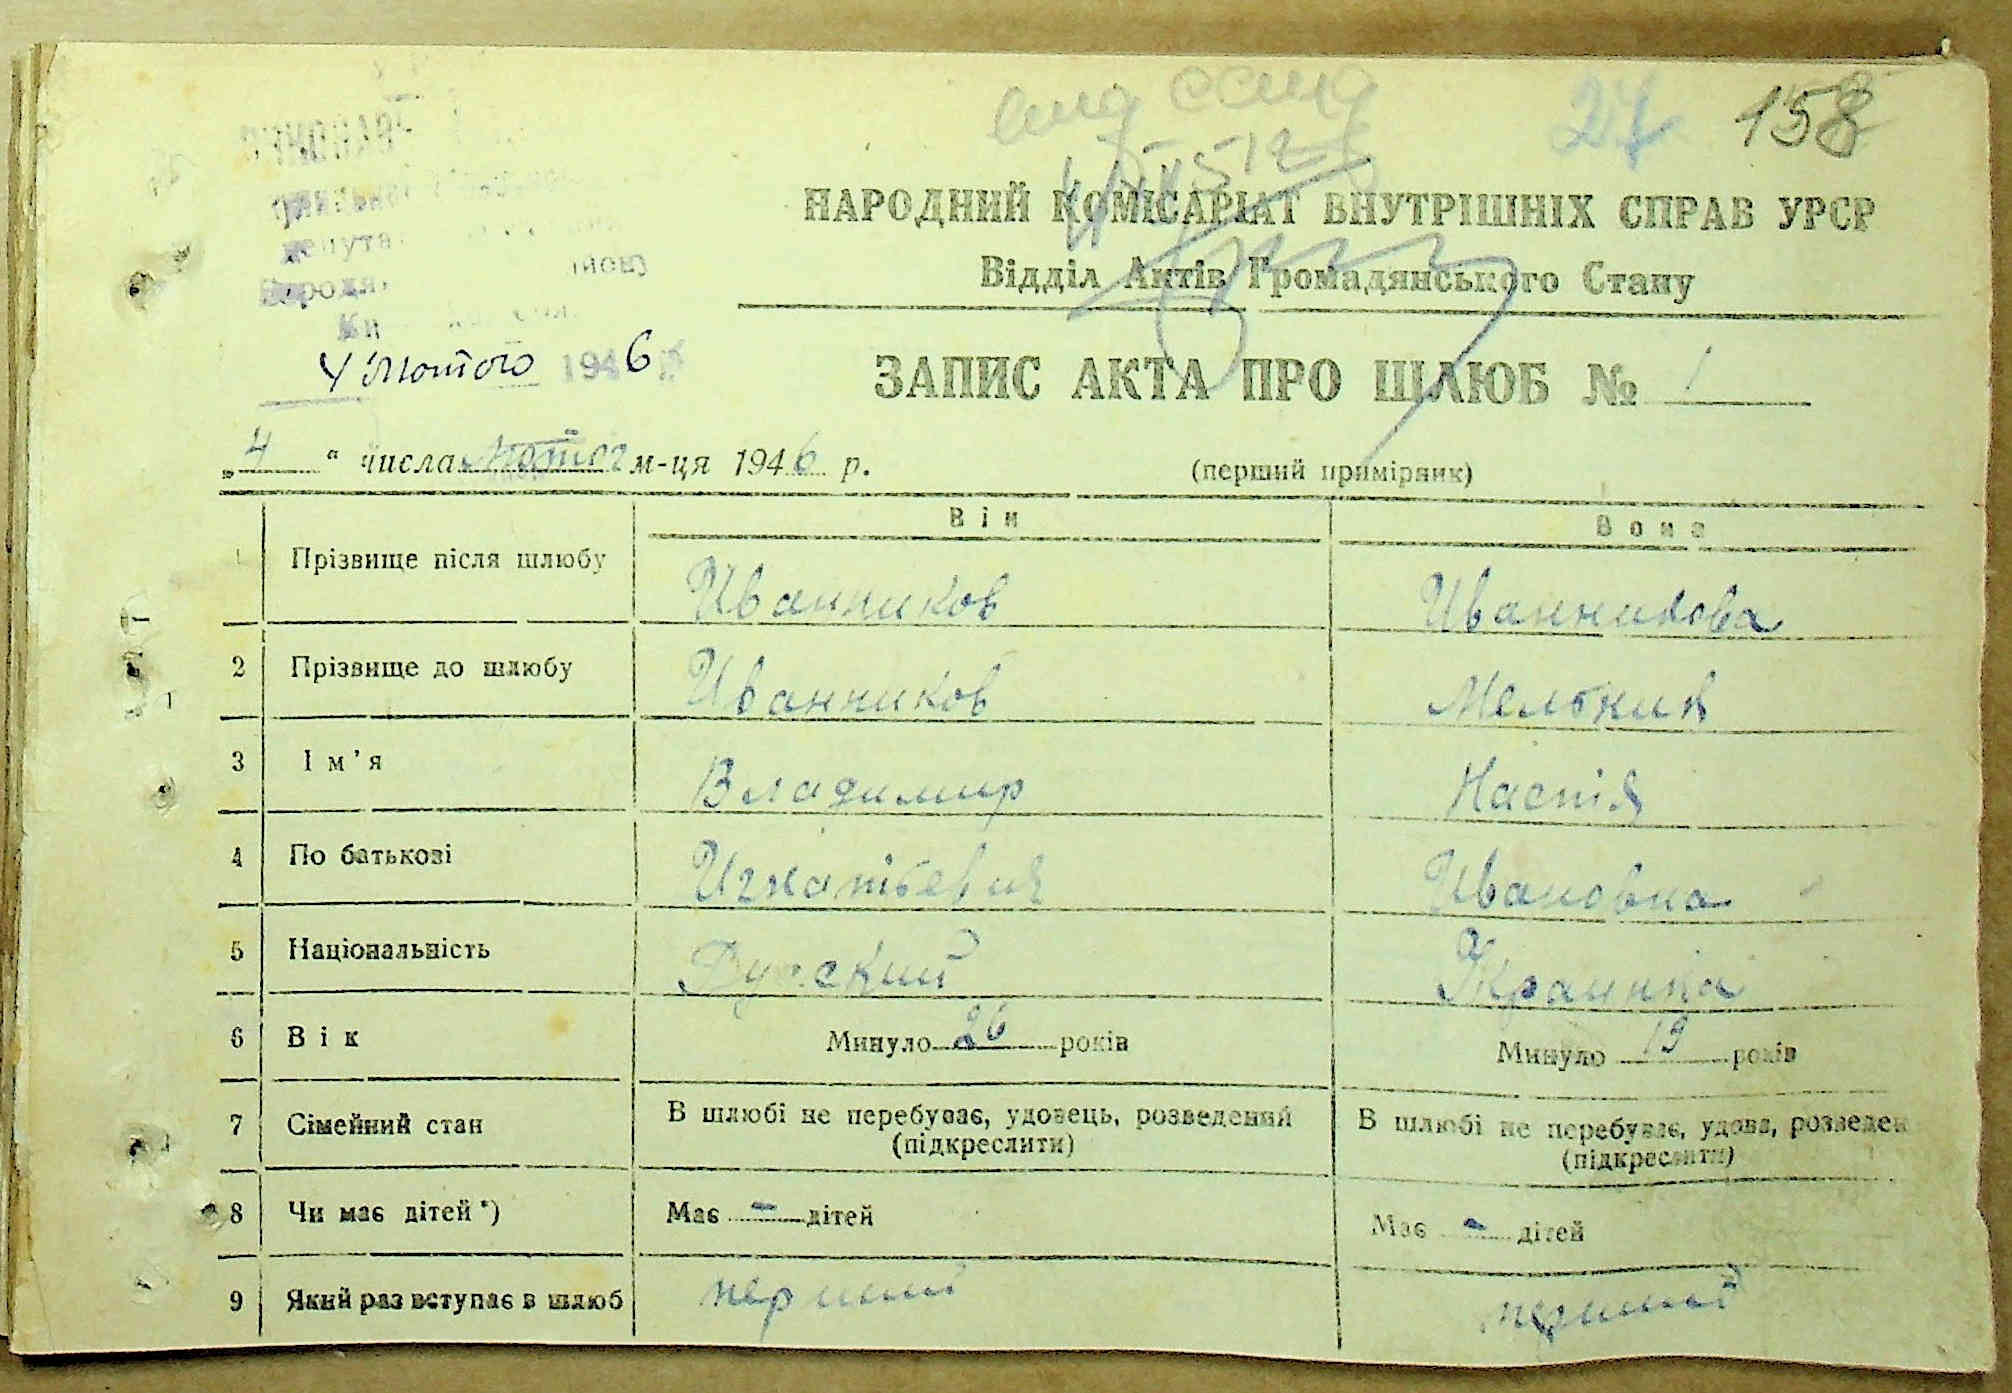 27 158
НАРОДНИЙ КОМІСАРІАТ ВНУТРІШНІХ СПРАВ УРСР
Відділ Актів Громадянського Стану
4 Лютого 1946
ЗАПИС АКТА ПРО ШЛЮБ № 1
„4“ числа лютог м-ця 1946 р.
(перший примірник)
Він Вона
1 Прізвище після шлюбу Иванников Иванникова
2 Прізвище до шлюбу Иванников Мельник
3 Ім’я Владимир Настія
4 По батькові Игнатьевич Ивановка
5 Національність Русский Украинка
6 Вік Минуло 26 років Минуло 19 років
7 Сімейний стан В шлюбі не перебуває, удовець, розведений В шлюбі не перебуває, удова, розведен
(підкреслити) (підкреслити)
8 Чи має дітей *) Має - дітей Має - дітей
9 Який раз вступає в шлюб перший перший